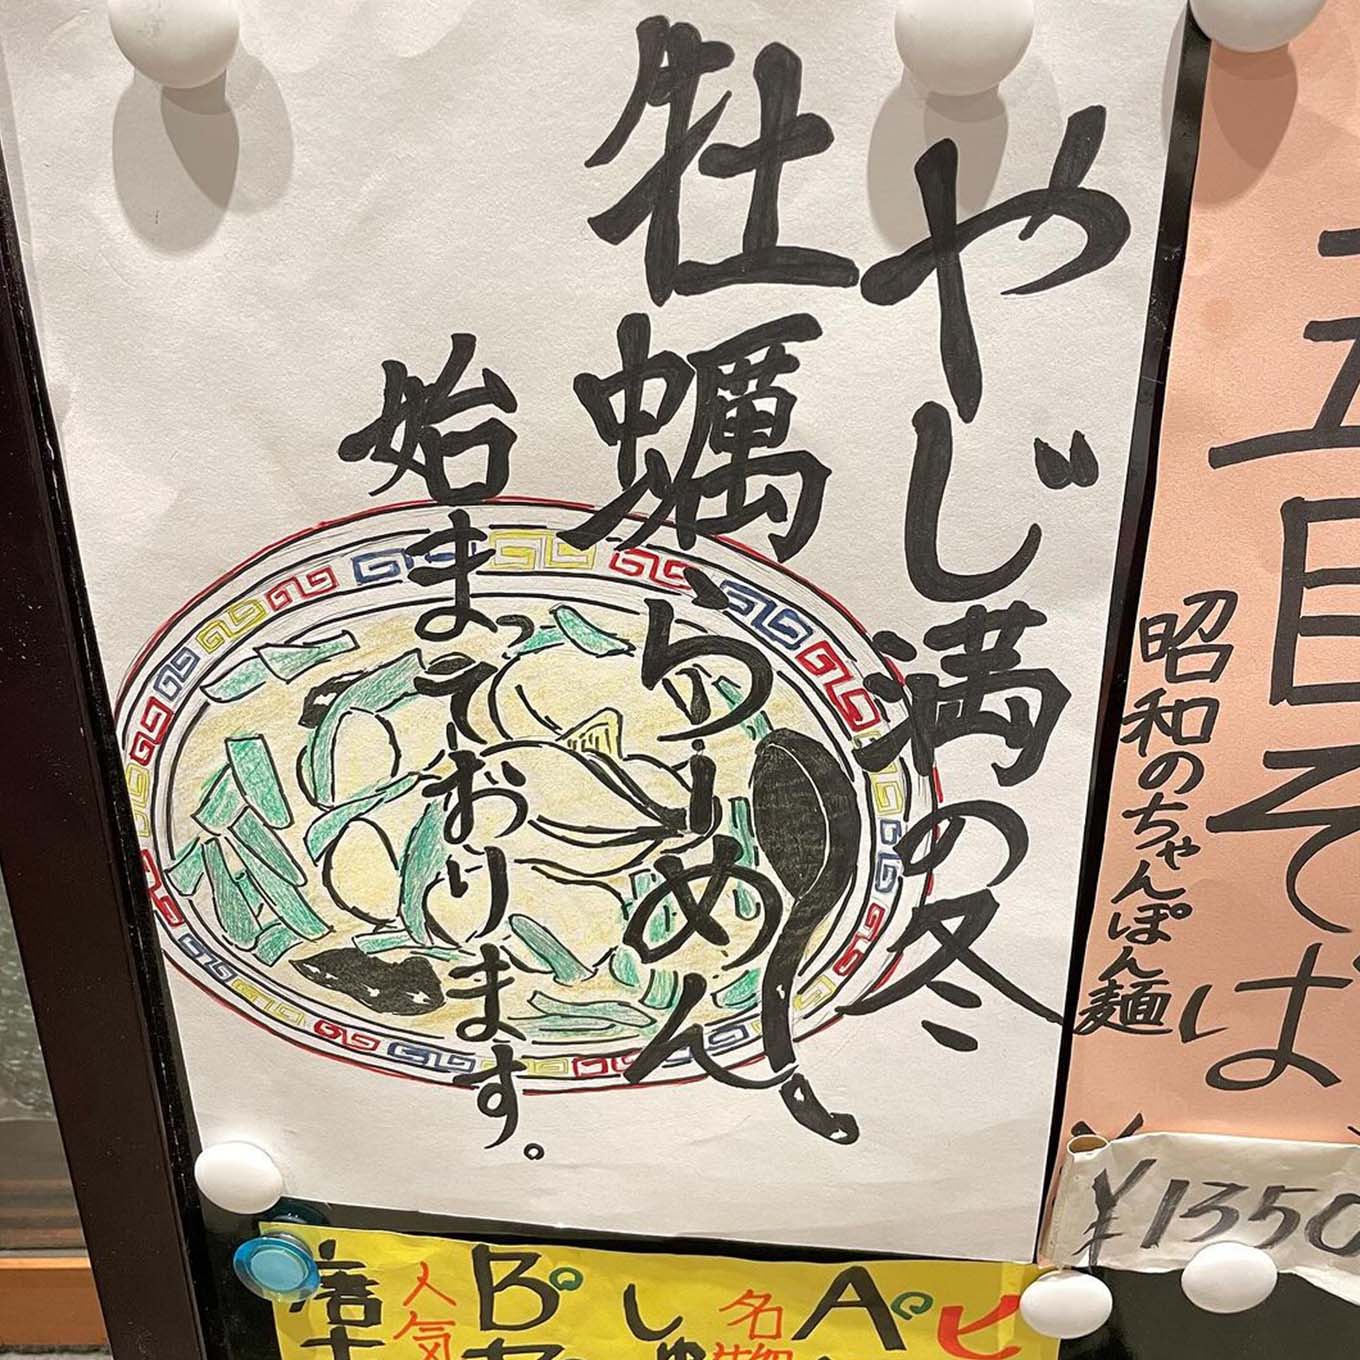 やじ満の冬
牡蠣らーめん
始まっております。
五目そば
昭和のちゃんぽん麺
¥1350
A
名物
B
人気